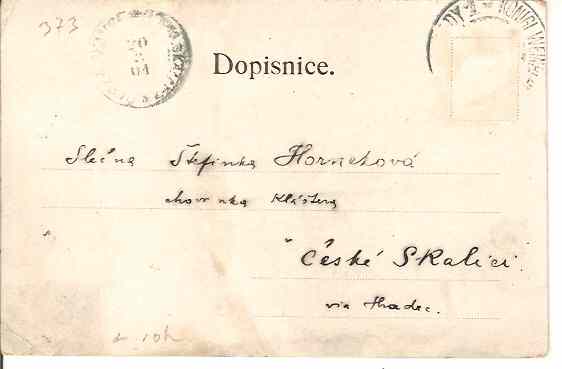 373
Dopisnice.
Slečna Štefinka Horneková
chovanka Kláštera
České Skalici
via Hradec.